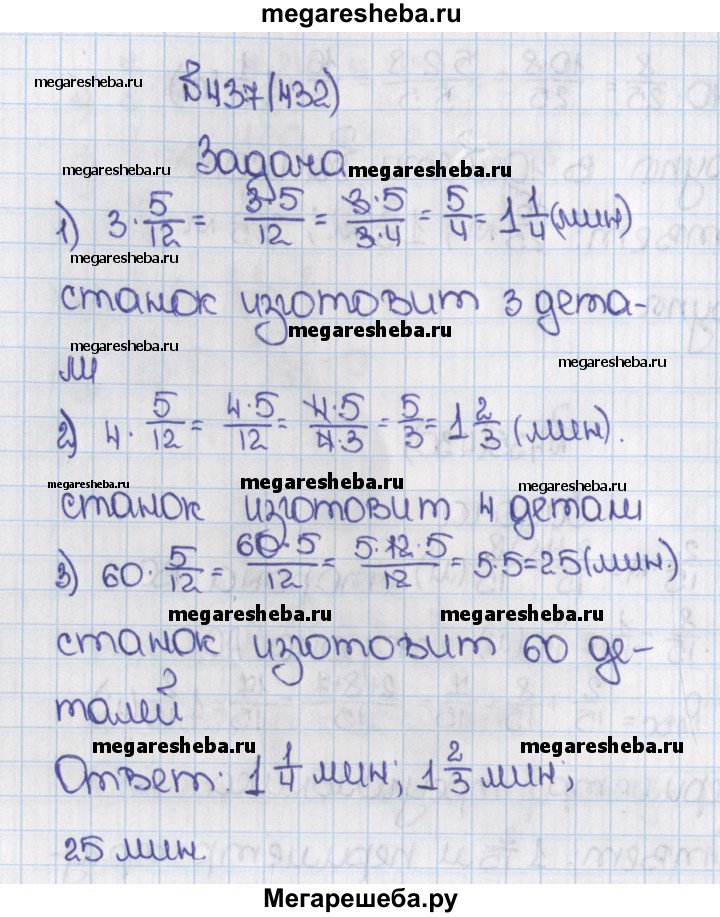 megaresheba.ru
megaresheba.ru
№437(432)
Задача
megaresheba.ru megaresheba.ru
1) 3·5/12 = 3·5/12 = 3·5/3·4 = 5/4 = 1 1/4 (мин)
megaresheba.ru
станок изготовит 3 дета-
megaresheba.ru
ли
megaresheba.ru megaresheba.ru
2) 4·5/12 = 4·5/12 = 4·5/4·3 = 5/3 = 1 2/3 (мин).
megaresheba.ru megaresheba.ru
станок изготовит 4 детали
3) 60·5/12 = 60·5/12 = 5·12·5/12 = 5·5=25(мин.)
megaresheba.ru megaresheba.ru
станок изготовит 60 де-
талей
megaresheba.ru megaresheba.ru
Ответ: 1 1/4 мин; 1 2/3 мин;
25 мин.
Мегарешеба.ру